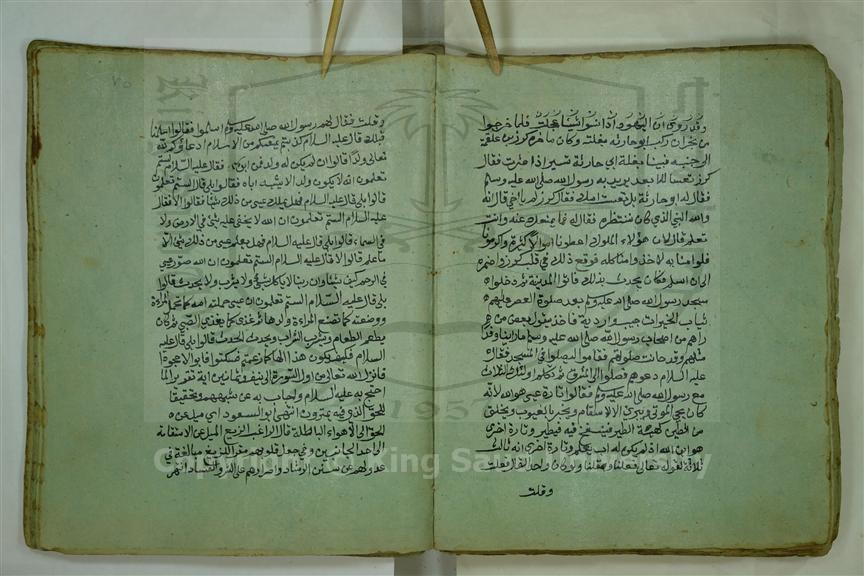 وقد روى ان اليهود اذا نسوا شيئا فلما خرجوا
من نجران ركب ابو حارثة بغلته وكان معه اخوه كرز بن علقمة
الى جنبه فبينا بغلة ابي حارثة تسير اذا عثرت فقال
كرز تعسا للابعد يريد به رسول الله صلى الله عليه وسلم
فقال له ابو حارثة بل تعست امك فقال كرز لم يا اخي قال انه
والله النبي الذي كان ننتظره فقال له فما يمنعك عنه وانت
تعلم قال لان هؤلاء الملوك اعطونا اموالا كثيرة واكرمونا
فلو امنا به لاخذوا منا كله فوقع ذلك في قلب كرز واضمره
الى ان اسلم فكان يحدث بذلك فاتوا المدينة ثم دخلوا
مسجد رسول الله صلى الله عليه وسلم بعد صلوة العصر عليهم
ثياب الحبرات جبب واردية يقول بعض من
راهم من اصحاب رسول الله صلى الله عليه وسلم ما راينا وفدا
مثلهم وقد حانت صلوتهم فقاموا ليصلوا في المسجد فقال
عليه السلام دعوهم فصلوا الى المشرق ثم تكلم اولئك الثلاثة
مع رسول الله صلى الله عليه وسلم فقالوا تارة عيسى هو الله لانه
كان يحيي الموتى ويبرئ الاسقام ويخبر بالغيوب ويخلق
من الطين كهيئة الطير فينفخ فيه فيطير وتارة اخرى
هو ابن الله اذ لم يكن له اب يعلم وتارة اخرى انه ثالث
ثلاثة لقوله تعالى فعلنا وقلنا ولو كان واحدا لقال فعلت
وقلت
وقلت فقال لهم رسول الله صلى الله عليه وسلم اسلموا فقالوا اسلمنا
قبلك قال عليه السلام كذبتم يمنعكم من الاسلام ادعاؤكم لله
تعالى ولدا قالوا ان لم يكن له ولد فمن ابوه فقال عليه السلام الستم
تعلمون انه لا يكون ولد الا يشبه اباه فقالوا بلى قال الستم تعلمون
قالوا بلى قال عليه السلام فهل يملك عيسى من ذلك شيئا فقالوا لا فقال
عليه السلام الستم تعلمون ان الله لا يخفى عليه شئ في الارض ولا
في السماء قالوا بلى قال عليه السلام فهل يعلم عيسى من ذلك شئ الا
ما علم قالوا لا قال عليه السلام الستم تعلمون ان الله صور عيسى
في الرحم كيف شاء وان ربنا لا ياكل ولا يشرب ولا يحدث قالوا
بلى قال عليه السلام الستم تعلمون ان عيسى حملته امه كما تحمل المراة
ووضعته كما تضع المراة ولدها ثم غذى كما يغذى الصبي ثم كان
يطعم الطعام ويشرب الشراب ويحدث الحدث قالوا بلى قال عليه
السلام فكيف يكون هذا الها كما زعمتم فسكتوا فابوا الا جحودا
فانزل الله تعالى من اول السورة الى نيف وثمانين اية تقريرا لما
احتج به عليه السلام واجاب به عن شبههم وتحقيقا
للحق الذي فيه يمترون انتهى ابو السعود اي ميل عن
الحق الى الاهواء الباطلة قال الراغب الزيغ الميل عن الاستقامة
الى احد الجانبين وفي جعل قلوبهم مقرا للزيغ مبالغة في
عدولهم عن سنن الرشاد واصرارهم على الشر والفساد انتهى